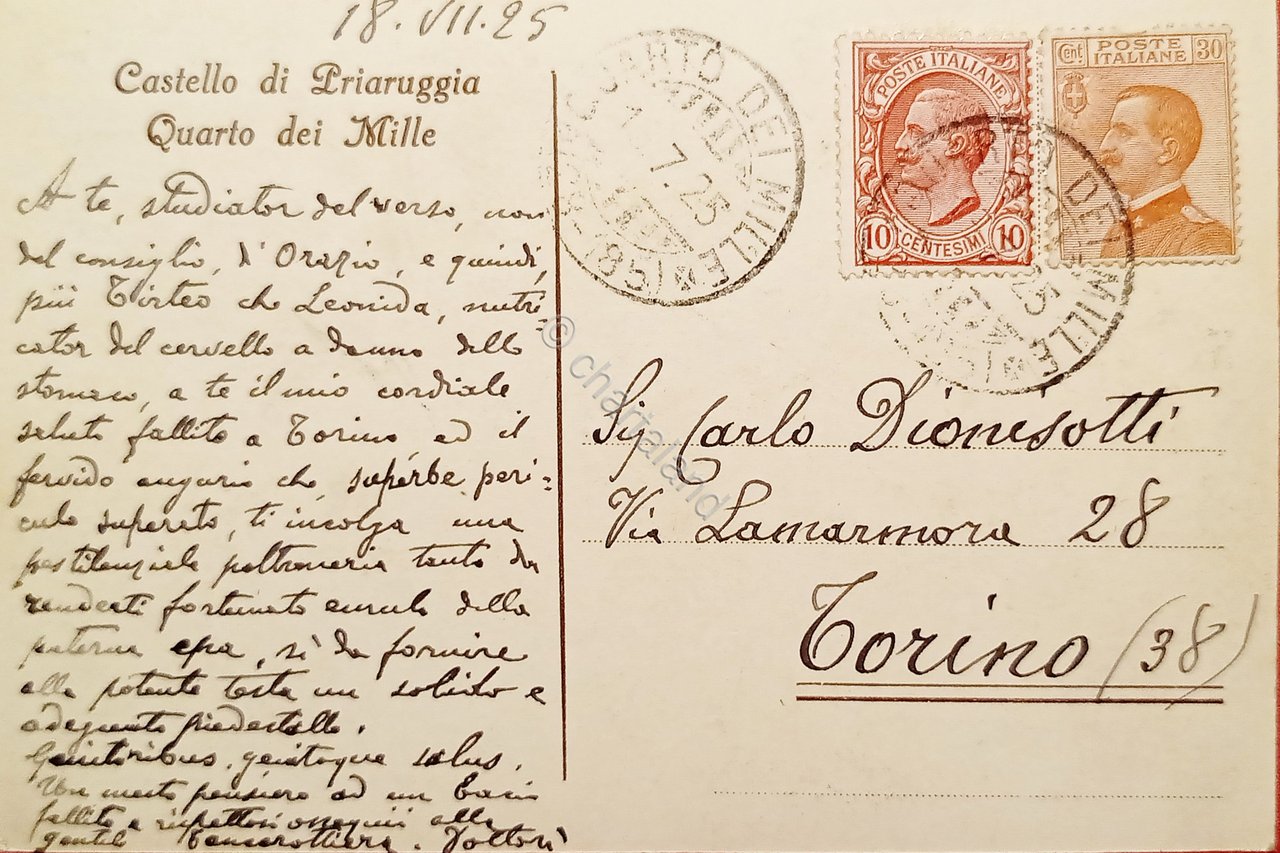 18.VII.25
Castello di Priaruggia
Quarto dei Mille
A te, studiator del verso, non
del consiglio, d'Orazio, e quindi,
più Tirteo che Leonida, nutri=
cator del cervello a danno dello
stomaco, a te il mio cordiale
saluto fallito a Torino ed il
fervido augurio che, superbe peri=
culo superato, ti incolga una
pestilenziale poltroneria tanto da
renderti fortunato emulo della
paterna epa, sì da fornire
alla potente testa un solido e
adeguato piedestallo.
Genitoribus, genitoque salus.
Un mesto pensiero ad un bacio
fallito e rispettosi ossequii alla
gentil
QUARTO DEI MILLE
7.25
POSTE ITALIANE
10 CENTESIMI 10
Cent POSTE 30
ITALIANE
DEI MILLE
25
Sig Carlo Dionisotti
Via Lamarmora 28
Torino (38)
© chartaland